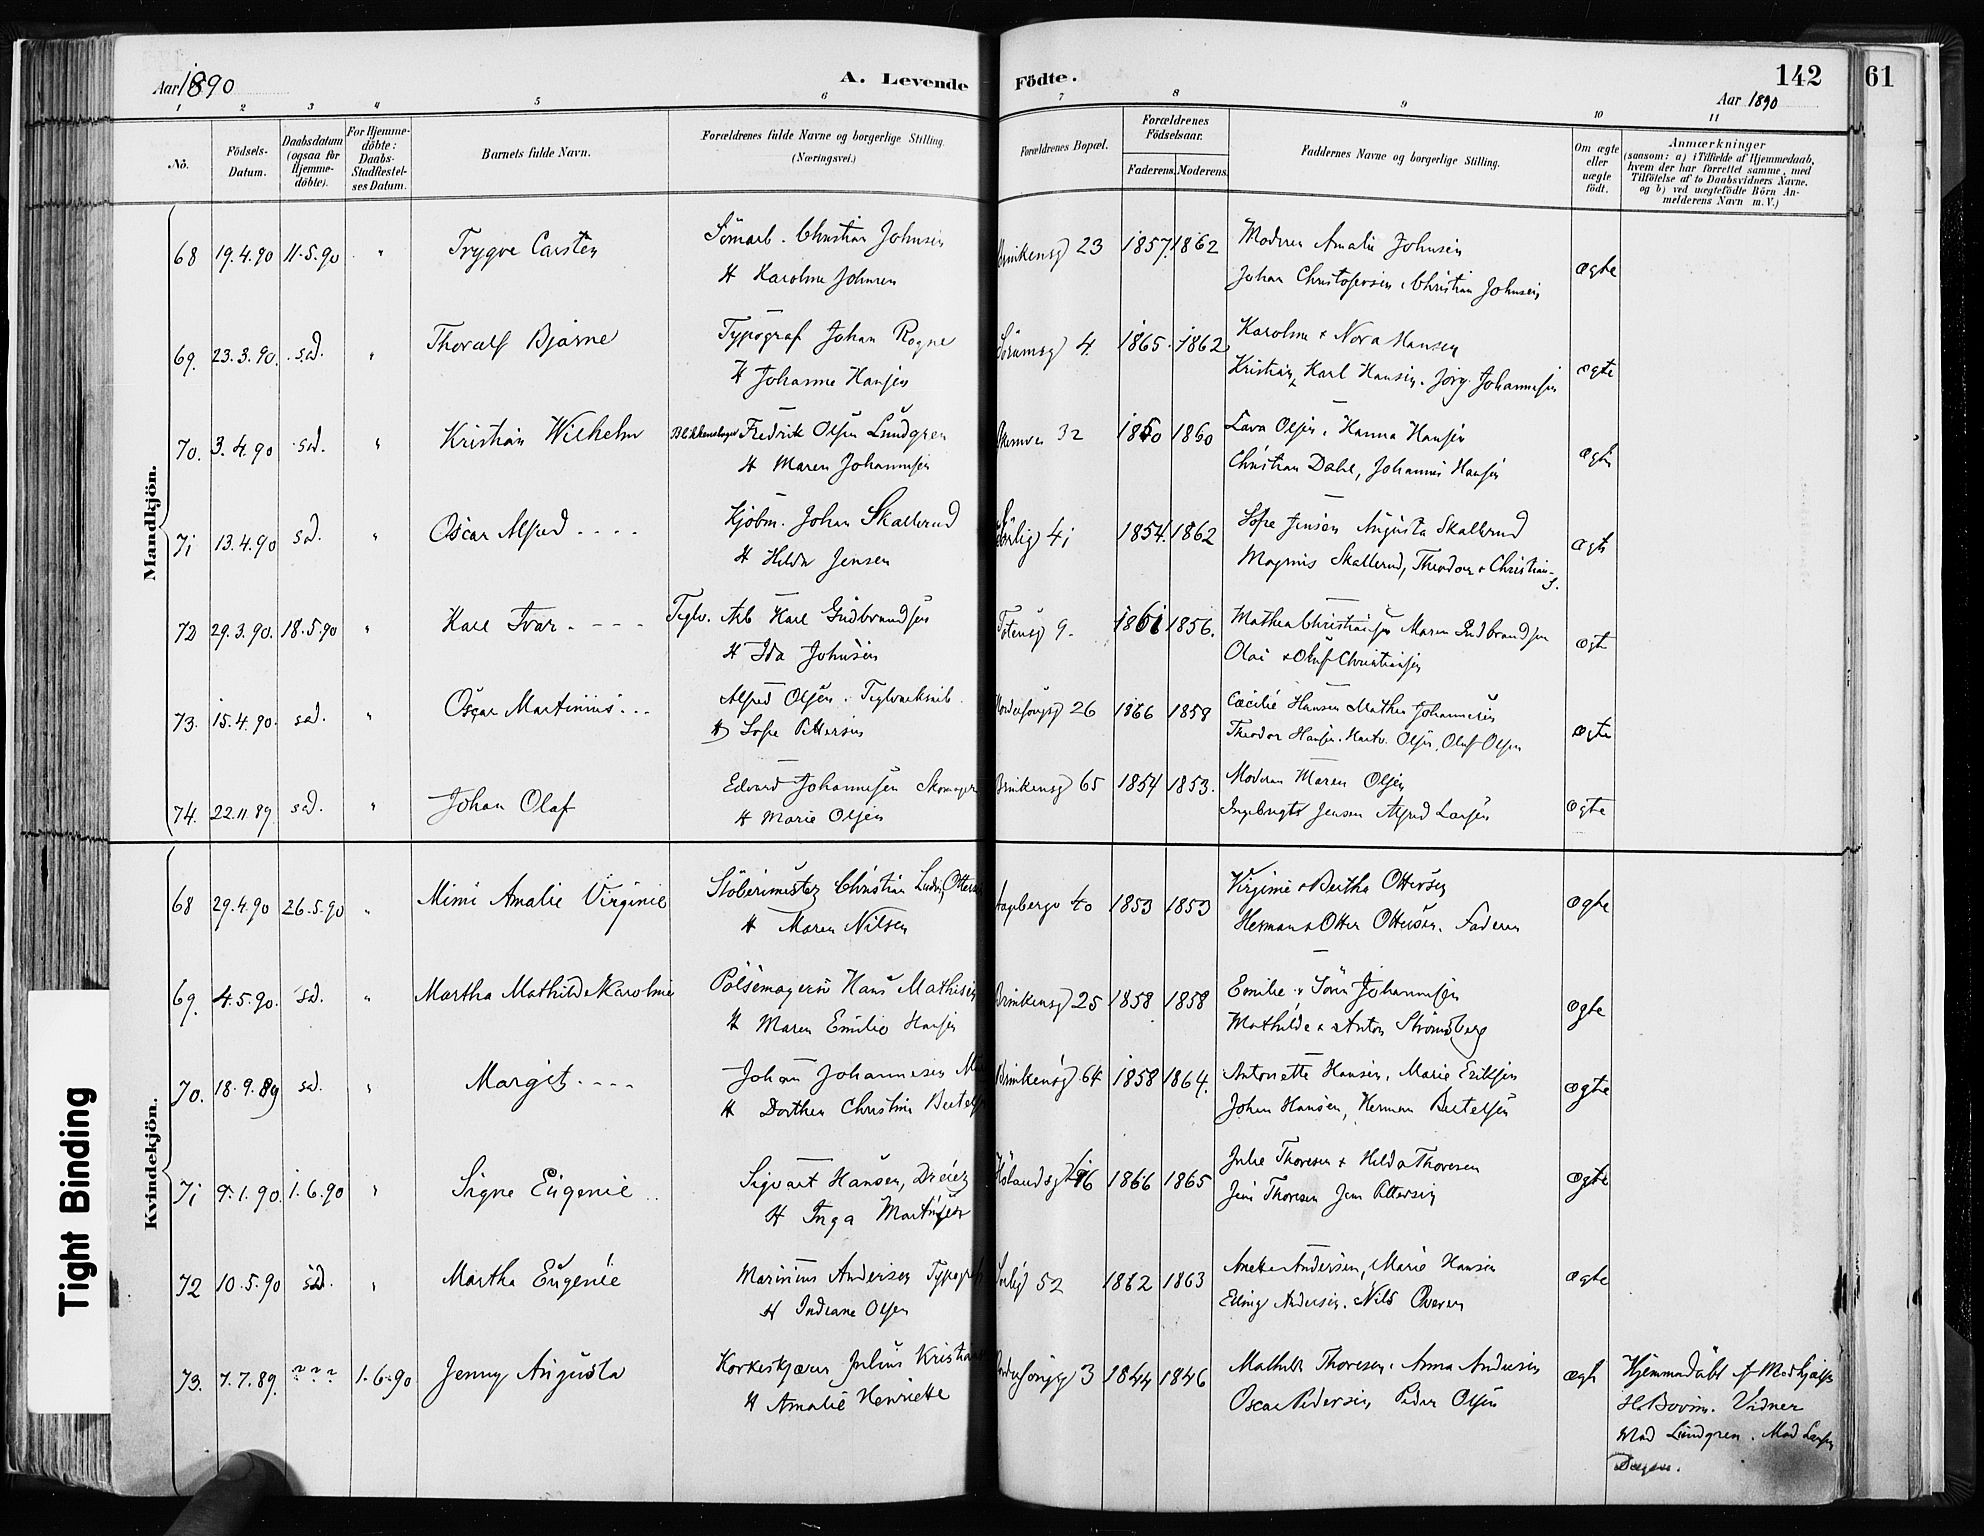 Aar 1890
A. Levende
Födte.
142
61
Aar 1890
1 2 3 4 5 6 7 8 9 10 11
No.
Födsels-
Datum.
Daabsdatum
(ogsaa for
Hjemme-
döbte).
For Hjemme-
döbte:
Daabs-
Stadfæstel-
ses Datum.
Barnets fulde Navn.
Forældrenes fulde Navne og borgerlige Stilling.
(Næringsvei.)
Forældrenes Bopæl.
Forældrenes
Födselsaar.
Faderens.
Moderens.
Faddernes Navne og borgerlige Stilling.
Om ægte
eller
uægte
födt.
Anmærkninger
(saasom: a) i Tilfælde af Hjemmedaab,
hvem der har forrettet samme, med
Tilföielse af to Daabsvidners Navne,
og b) ved uægtefödte Börn An-
melderens Navn m. V.)
Mandkjön.
68 19.4.90 11.5.90 " Trygve Carsten
Christian Johnsen
H Karoline Johnsen
23 1857. 1862
Moderen Amalie Johnsen
Johan Christofersen, Christian Johnsen
ægte
69. 23.3.90. sad. " Thoralf Bjarne
Typograf Johan Rogne
H Johanne Hansen
Sörumsg 4. 1865. 1862
Karoline & Nora Hansen
Kristian & Karl Hansen. Jörg. Johannesen
ægte
70. 3.4.90 sad. " Kristian Wilhelm
Blikkenslager Fredrik Olsen Lundgren
H Maren Johannesen
32 1850 1860
Olsen, Hanna Hansen
Christian Dahl, Johannes Hansen
ægte
71 13.4.90 sad. " Oscar Alfred ....
Kjöbm. Johan Skallerud
H Hilda Jensen
41 1854. 1862
Sofie Jensen Augusta Skallerud
Magnus Skallerud, Theodor & Christian
J.
ægte
72 29.3.90. 18.5.90 " Karl Ivar. - - -
Teglv. Arb Karl Gudbrandsen
H Ida Johnsen
Totensg 9. 1861 1856.
Mathea Christiansen Maren Gudbrandsen
Olai & Oluf Christiansen
ægte
73. 15.4.90. sad. " Oscar Martinius...
Alfred Olsen. Teglværksarb.
H Sofie Pettersen
26 1866 1858
Cæcilie Hansen Mathea Johannesen
Theodor Hansen. Hartv. Olsen, Oluf Olsen
ægte
74. 22.11.89 sad. " Johan Olaf
Edvard Johannesen Skomager
H Marie Olsen
Brinkensg 65 1854 1853.
Moderen Maren Olsen
Ingebrigt Jensen Alfred Larsen
ægte
Kvindekjön.
68 29.4.90 26.5.90 " Mimi Amalie Virginie
Stöberimester Christian Ludv. Ottersen
H Maren Nilsen
40 1853 1853
Virginie & Bertha Ottersen
Herman & Otter Ottersen. Faderen
ægte
69. 4.5.90. sad. " Martha Mathilde Karoline
Pölsemager Hans Mathisen
H Maren Emilie Hansen
Brinkensg 25 1858 1858
Emilie & Johannesen
Mathilde & Anton Strömsberg
ægte
70. 18.9.89 sad. " Margit. ----
Johan Johannesen
H Dorthea Christine Bertels
Brinkensg 64 1858 1864.
Antonette Hansen, Marie Eriksen
Johan Hansen, Herman Bertelsen
ægte
71 9.1.90. 1.6.90 " Signe Eugenie ..
Sigvart Hansen, Dreier
H Inga Martinsen
1866 1865
Julie Thoresen & Hilda Thoresen
Jens Thoresen Jens Pettersen
ægte
72 10.5.90 sad. " Martha Eugenie
Marinius Andersen Typograf
H Indiane Olsen
52 1862 1863
Anette Andersen, Marie Hansen
Elling Andersen. Nils
ægte
73. 7.7.89. ??? 1.6.90 Jenny Augusta
Korkeskjærer Julius Kristians
H Amalie Henriette
3 1844 1846
Mathilde Thoresen. Anna Andersen
Oscar Pedersen Peder Olsen
ægte
Hjemmedöbt af
H. Bovim. Vidner
Mad Lundgren. Mad Larsen
Tight Binding